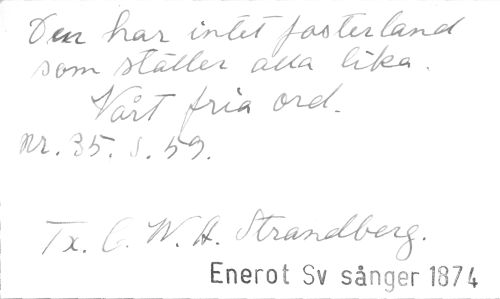 Den har intet fosterland
som ställer alla lika.
Vårt fria ord.
Nr. 35. s. 59.
Tx. C. W. A. Strandberg.
Enerot Sv sånger 1874